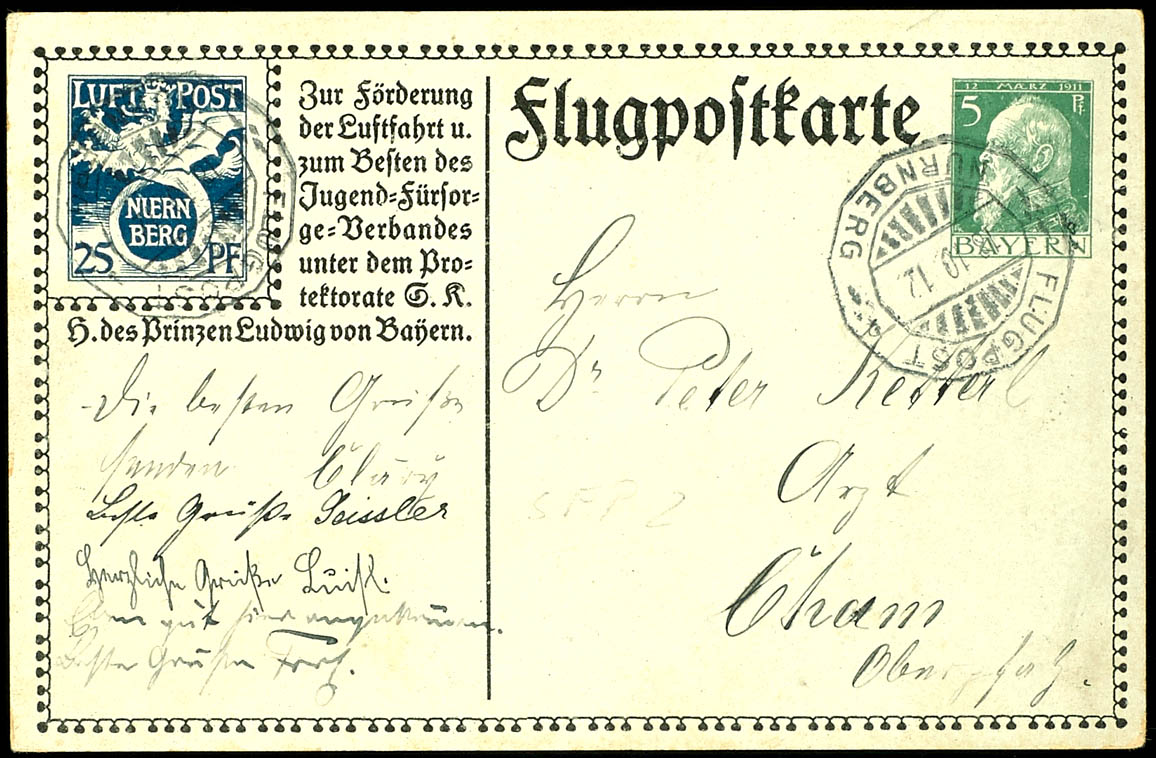 LUFT POST
NUERN
BERG
25 PF
Zur Förderung
der Luftfahrt u.
zum Besten des
Jugend=Fürsor=
ge=Verbandes
unter dem Pro=
tektorate S. K.
H. des Prinzen Ludwig von Bayern.
Flugpostkarte
12 MÆRZ 1911
5 Pf.
BAYERN
NÜRNBERG
10. 12
FLUGPOST
Herrn
Dr Peter Ketterl
Arzt
Cham
Oberpfalz.
SFP 2
Die besten Grüße
senden Clary
Beste Grüße Geissler
Herzliche Grüße Luisl.
gut hier angekommen.
Beste Grüße